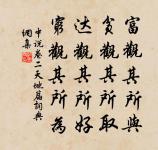 富觀其所與
貧觀其所取
达觀其所好
窮觀其所為
中说卷二天地篇詞典
網集